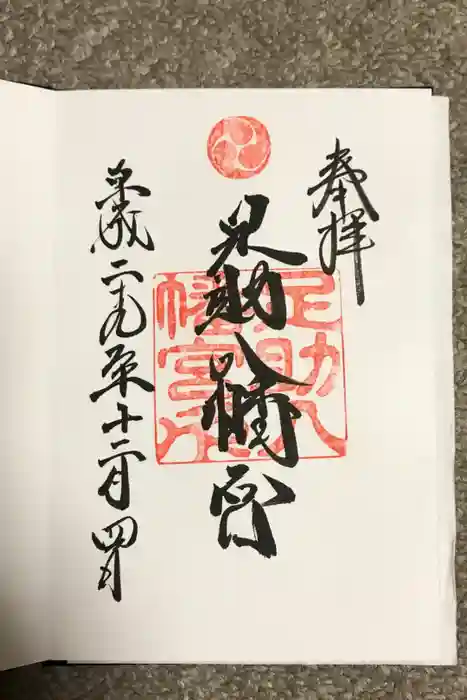 奉拝
足助八幡宮
足助八
幡宮印
平成二十九年十二月四日